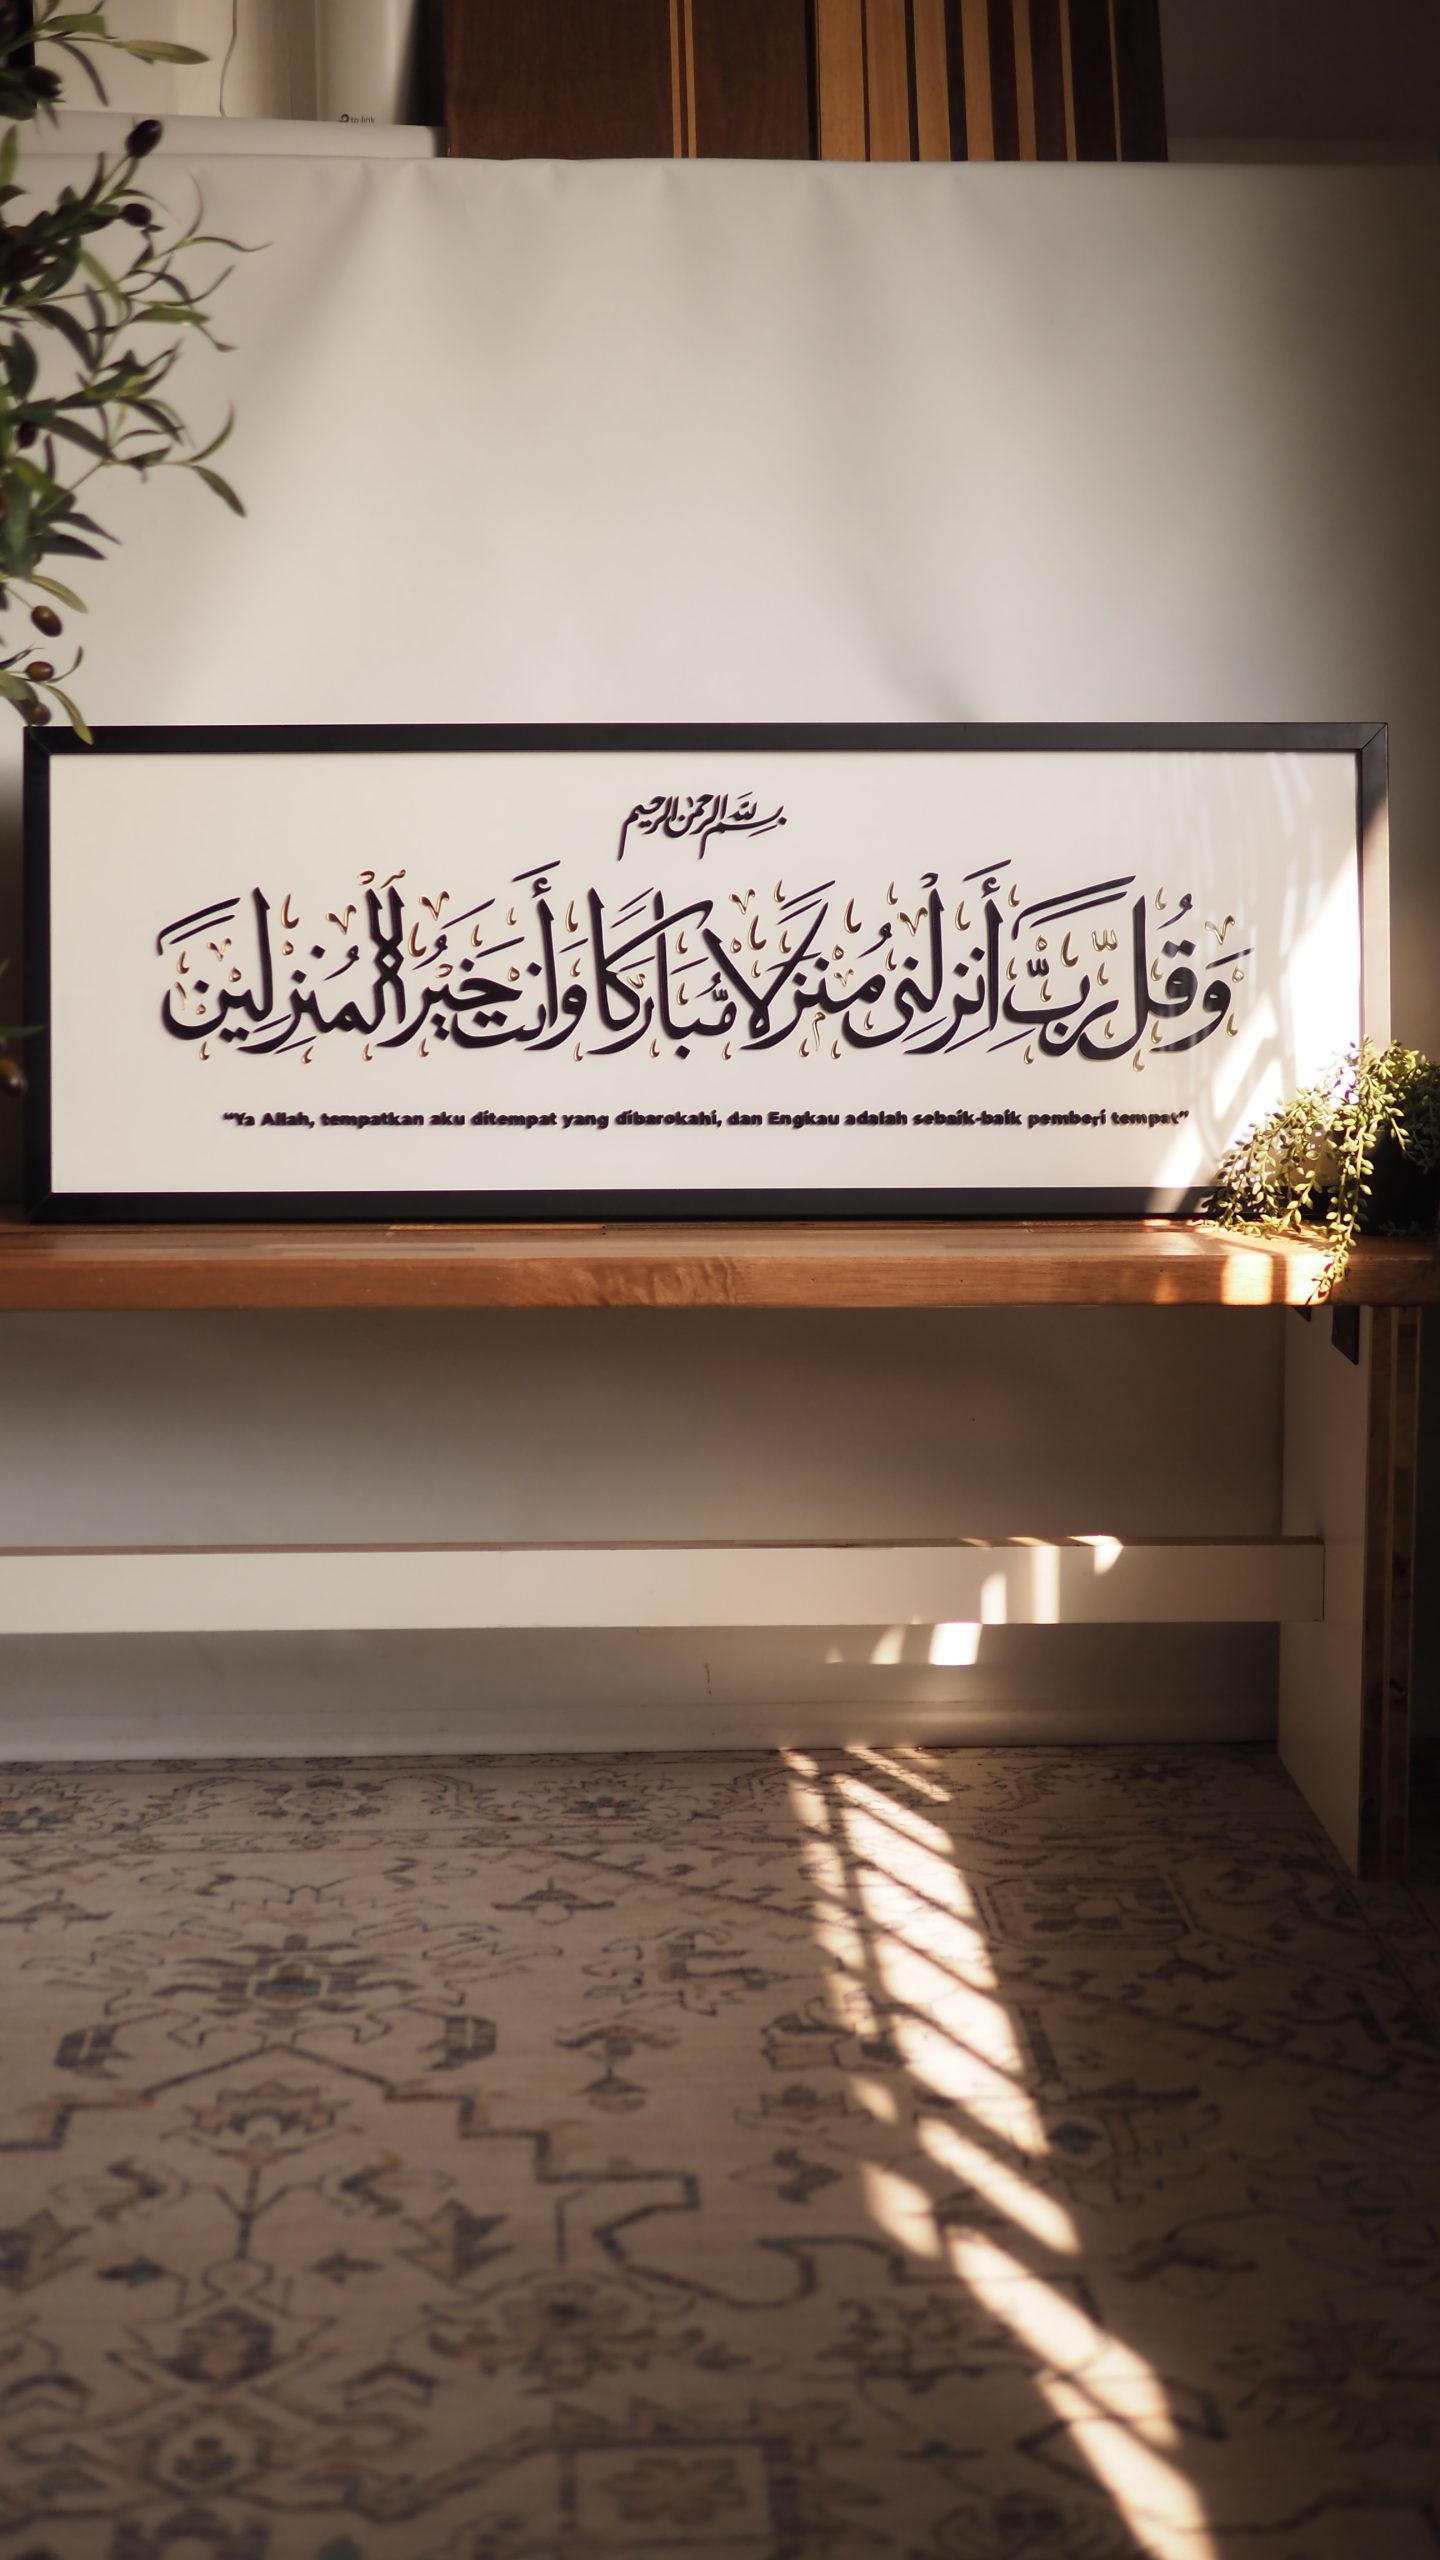 tp-link
بسم الله الرحمن الرحيم
وَقُل رَّبِّ أَنزِلْنِي مُنزَلًا مُّبَارَكًا وَأَنتَ خَيْرُ الْمُنزِلِينَ
“Ya Allah, tempatkan aku ditempat yang dibarokahi, dan Engkau adalah sebaik-baik pemberi tempat”